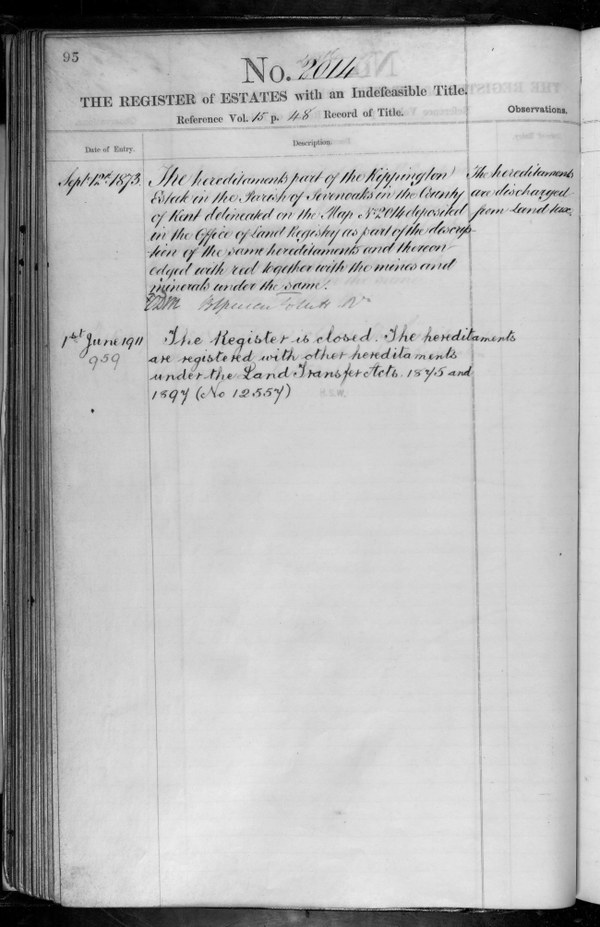 95
No. 2014
THE REGISTER of ESTATES with an Indefeasible Title.
Reference Vol. 15 p. 48 Record of Title.
Observations.
Date of Entry.
Description.
Sept 12th 1873.
The hereditaments part of the Kippington
Estate in the Parish of Sevenoaks in the County
of Kent delineated on the Map No 2014 deposited
in the Office of Land Registry as part of the descrip-
tion of the same hereditaments and thereon
edged with red together with the mines and
minerals under the same.
The hereditaments
are discharged
from land tax.
1st June 1911
959
The Register is closed. The hereditaments
are registered with other hereditaments
under the Land Transfer Acts. 1875 and
1897 (No 12557)